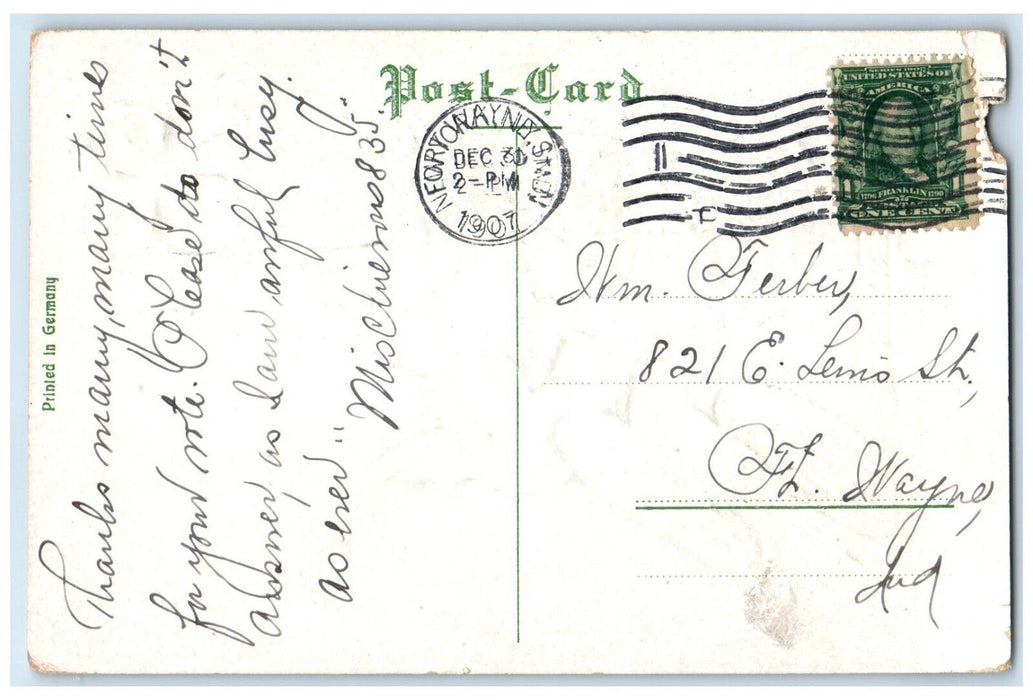 Post-Card
Printed in Germany
Thanks many, many times
for your note. Please do don't
answer, as I am awful busy.
as ever "Mischievus 835."
FORT WAYNE, IND.
DEC 30
2-PM
1907
SERIES 1902
UNITED STATES OF
AMERICA
FRANKLIN
ONE CENT
Wm. Ferber,
821 E. Lewis St.,
Ft. Wayne,
Ind